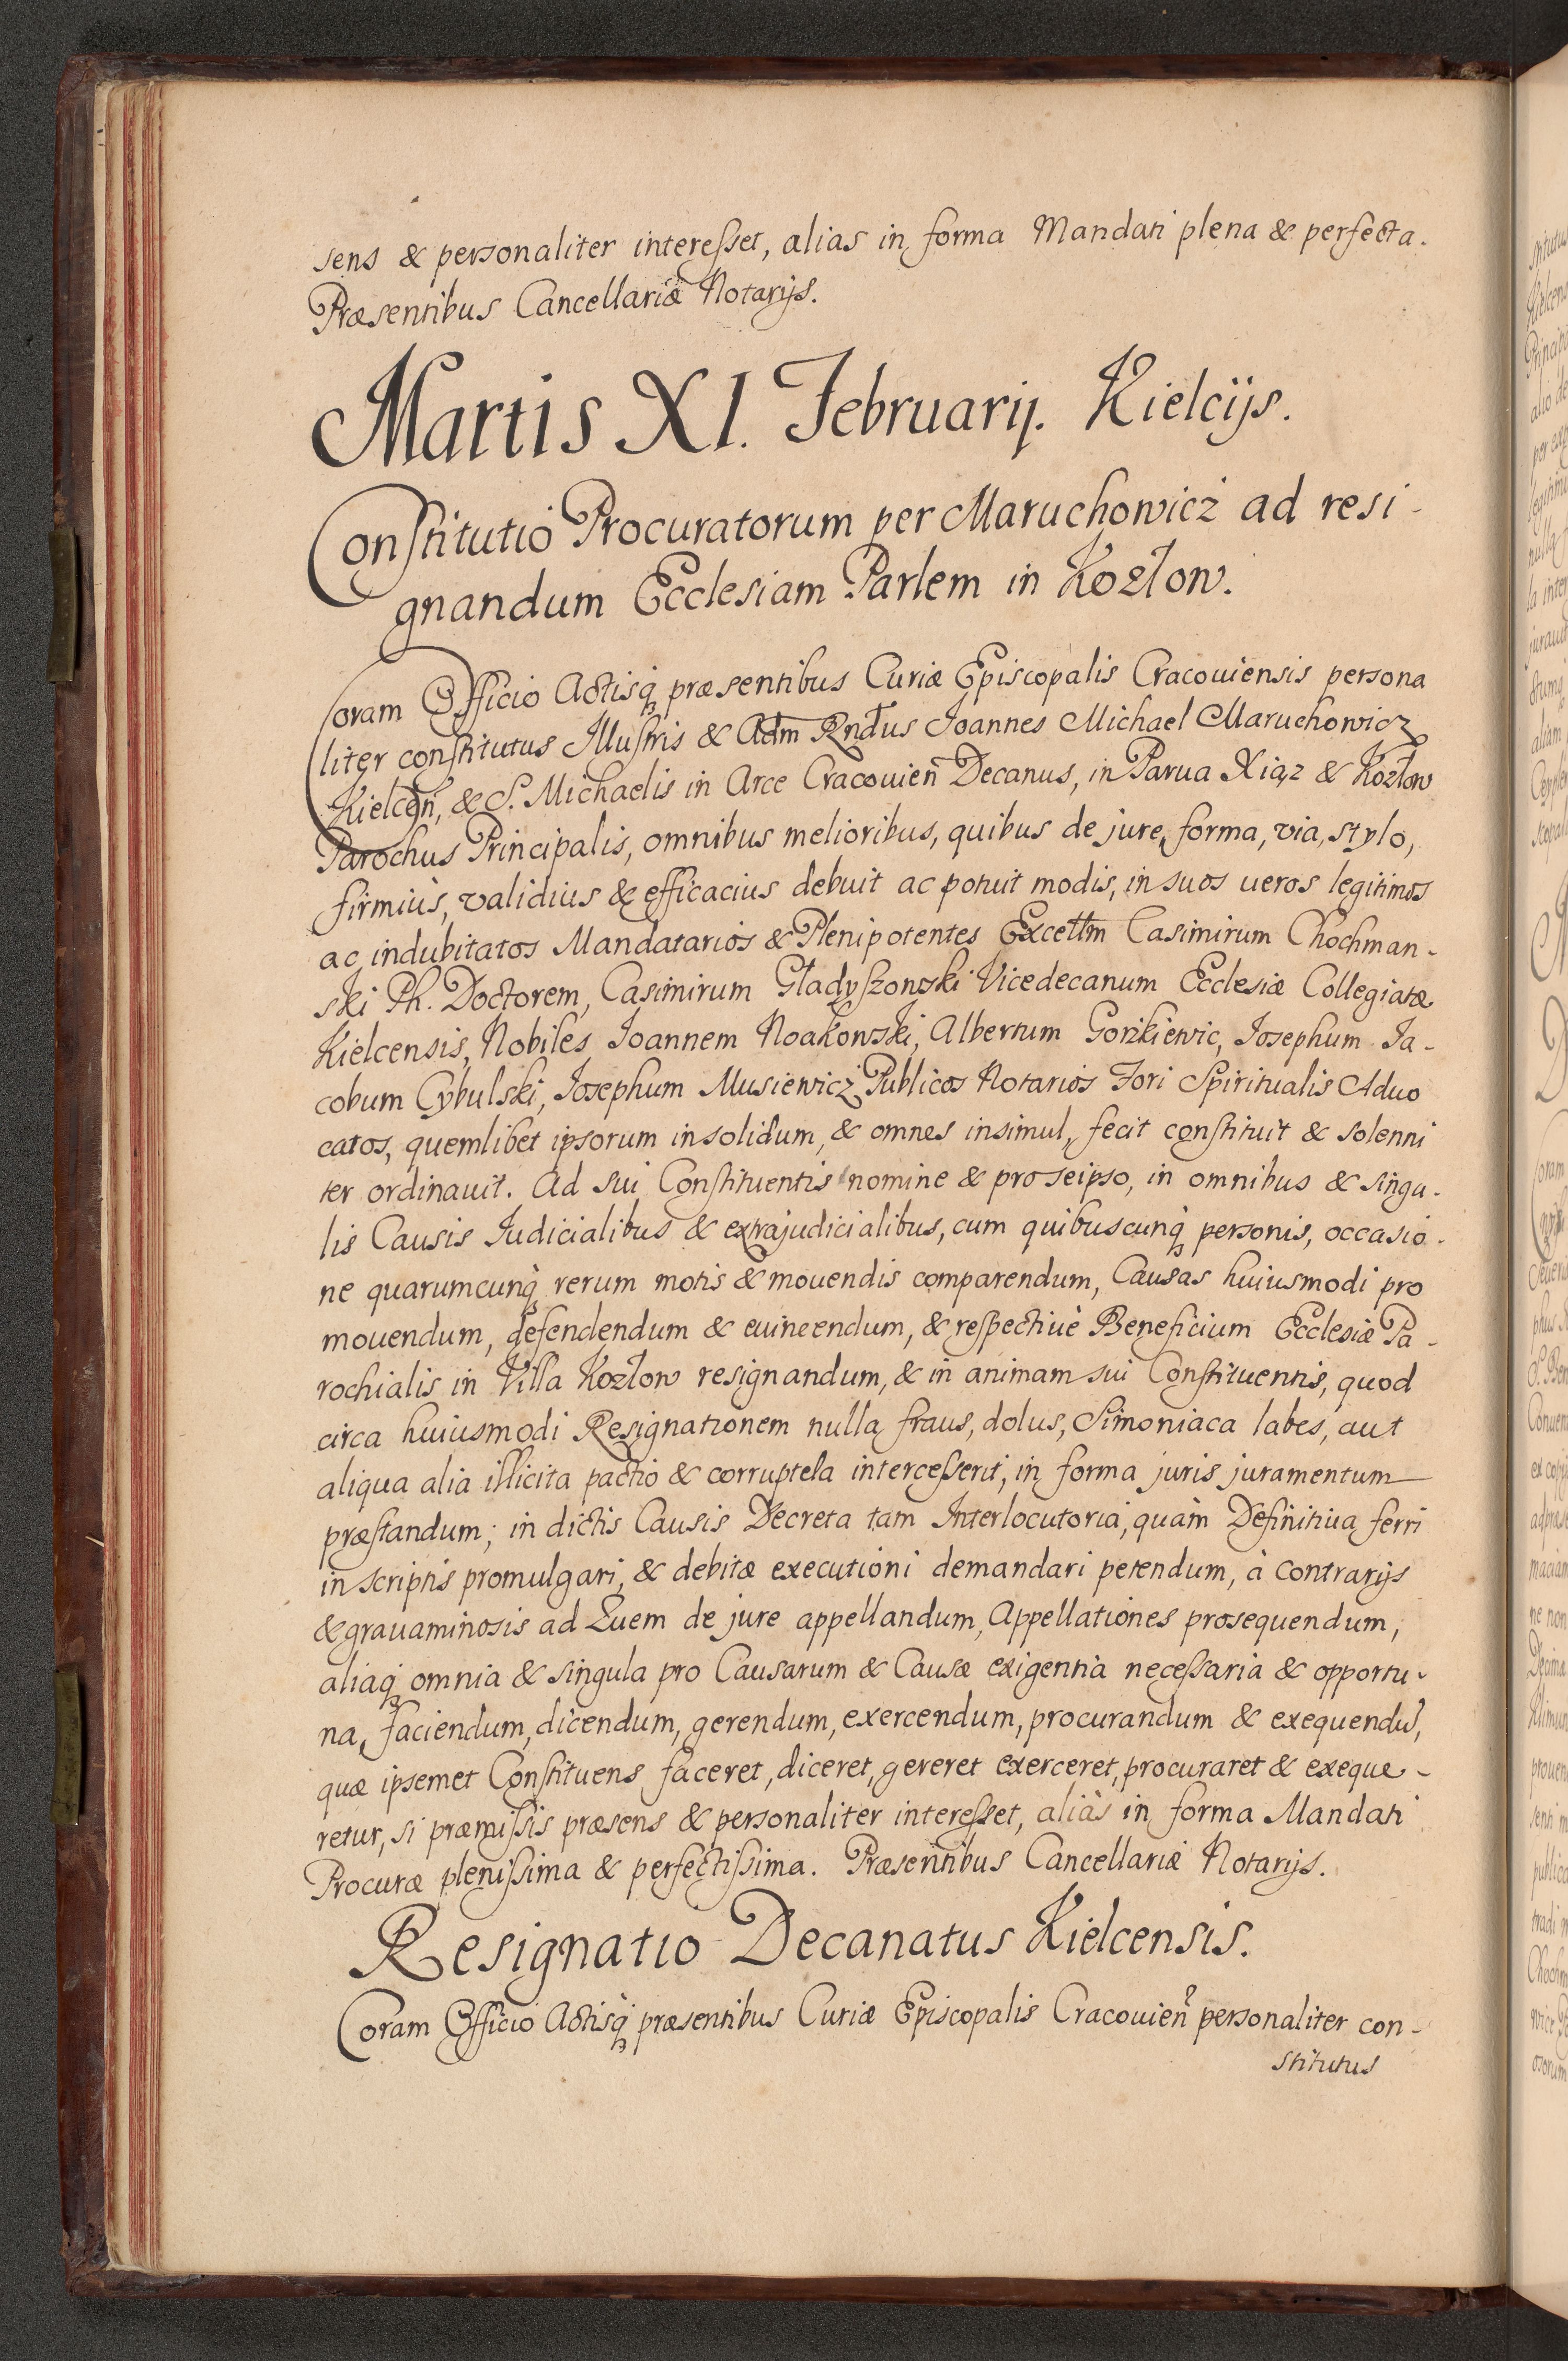 sens & personaliter interesset, alias in forma Mandati plena & perfecta.
Præsentibus Cancellariæ Notarijs.
Martis XI. Februarij. Kielcijs.
Constitutio Procuratorum per Maruchowicz ad resi-
gnandum Ecclesiam Parlem in Kozłow.
Coram Officio Actisq præsentibus Curiæ Episcopalis Cracouiensis persona
liter constitutus Illustris & Adm Rndus Joannes Michael Maruchowicz
Kielcen, & S. Michaelis in Arce Cracouien Decanus, in Parua Xiąz & Kozłow
Parochus Principalis, omnibus melioribus, quibus de jure, forma, via, stylo,
firmiùs, validiùs & efficacius debuit ac potuit modis, in suos ueros legitimos
ac indubitatos Mandatarios & Plenipotentes Excellm Casimirum Chochman-
ski Ph. Doctorem, Casimirum Gładyszowski Vicedecanum Ecclesiæ Collegiatæ
Kielcensis, Nobiles Joannem Noakowski, Albertum Gorzkiewic, Josephum Ja-
cobum Cybulski, Josephum Musiewicz Publicos Notarios Fori Spiritualis Aduo
catos, quemlibet ipsorum insolidum, & omnes insimul, fecit constituit & solenni
ter ordinauit. Ad sui Constituentis nomine & pro seipso, in omnibus & singu-
lis Causis Judicialibus & extrajudicialibus, cum quibuscunq personis, occasio-
ne quarumcunq rerum motis & mouendis comparendum, Causas huiusmodi pro
mouendum, defendendum & euincendum, & respectiuè Beneficium Ecclesiæ Pa-
rochialis in Villa Kozłow resignandum, & in animam sui Constituentis, quod
circa huiusmodi Resignationem nulla fraus, dolus, Simoniaca labes, aut
aliqua alia illicita pactio & corruptela intercesserit, in forma juris juramentum
præstandum; in dictis Causis Decreta tam Interlocutoria, quàm Definitiua ferri
in scriptis promulgari, & debitæ executioni demandari petendum, à contrarijs
& grauaminosis ad Quem de jure appellandum, Appellationes prosequendum,
aliaq omnia & singula pro Causarum & Causæ exigentia necessaria & opportu-
na, faciendum, dicendum, gerendum, exercendum, procurandum & exequendũ,
quæ ipsemet Constituens faceret, diceret, gereret exerceret, procuraret & exeque-
retur, si præmissis præsens & personaliter interesset, aliàs in forma Mandati
Procuræ plenissima & perfectissima. Præsentibus Cancellariæ Notarijs.
Resignatio Decanatus Kielcensis.
Coram Officio Actisq præsentibus Curiæ Episcopalis Cracouien personaliter con-
stitutus